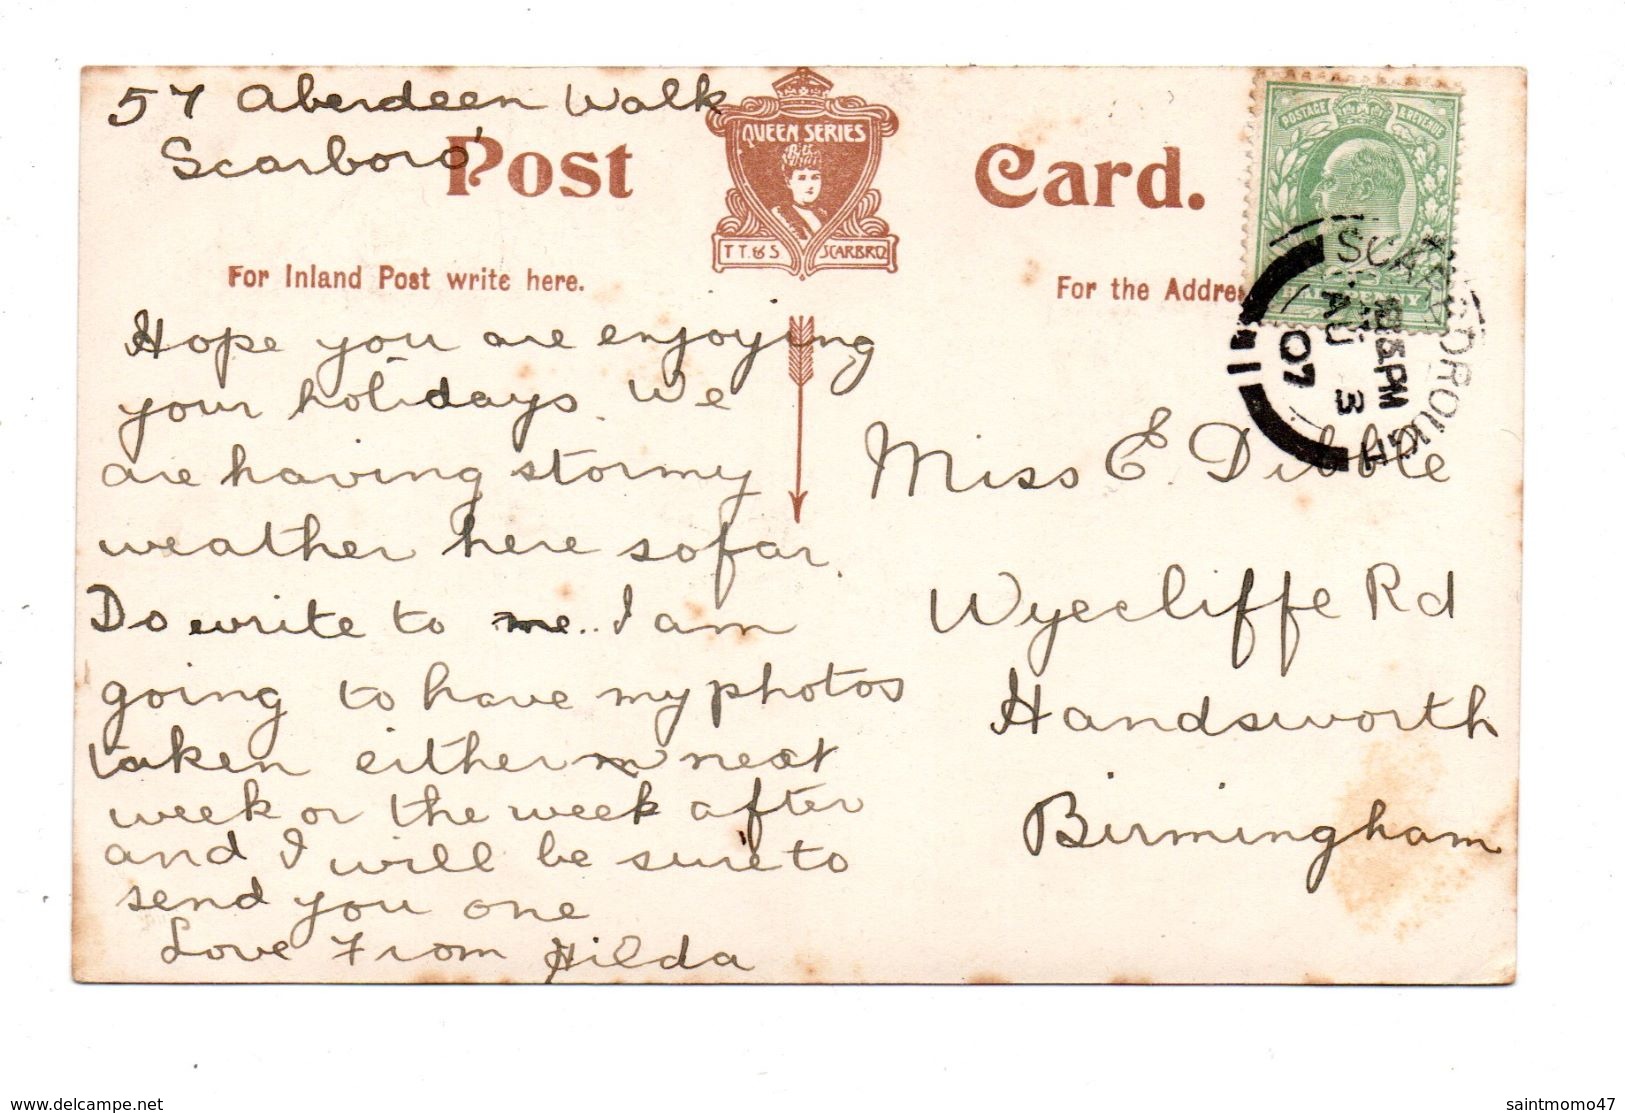 57 Aberdeen Walk
Scarboro'
Post Card.
QUEEN SERIES
T T. & S SCARBRO
For Inland Post write here.
For the Addres
POSTAGE & REVENUE
SCARBOROUGH
PM
AU 3
07
Hope you are enjoying
your holidays. We
are having stormy
weather here so far.
Do write to me. I am
going to have my photos
taken either next
week or the week after
and I will be sure to
send you one
Love From Hilda
Miss E. Dibble
Wyecliffe Rd
Handsworth
Birmingham
www.delcampe.net
saintmomo47